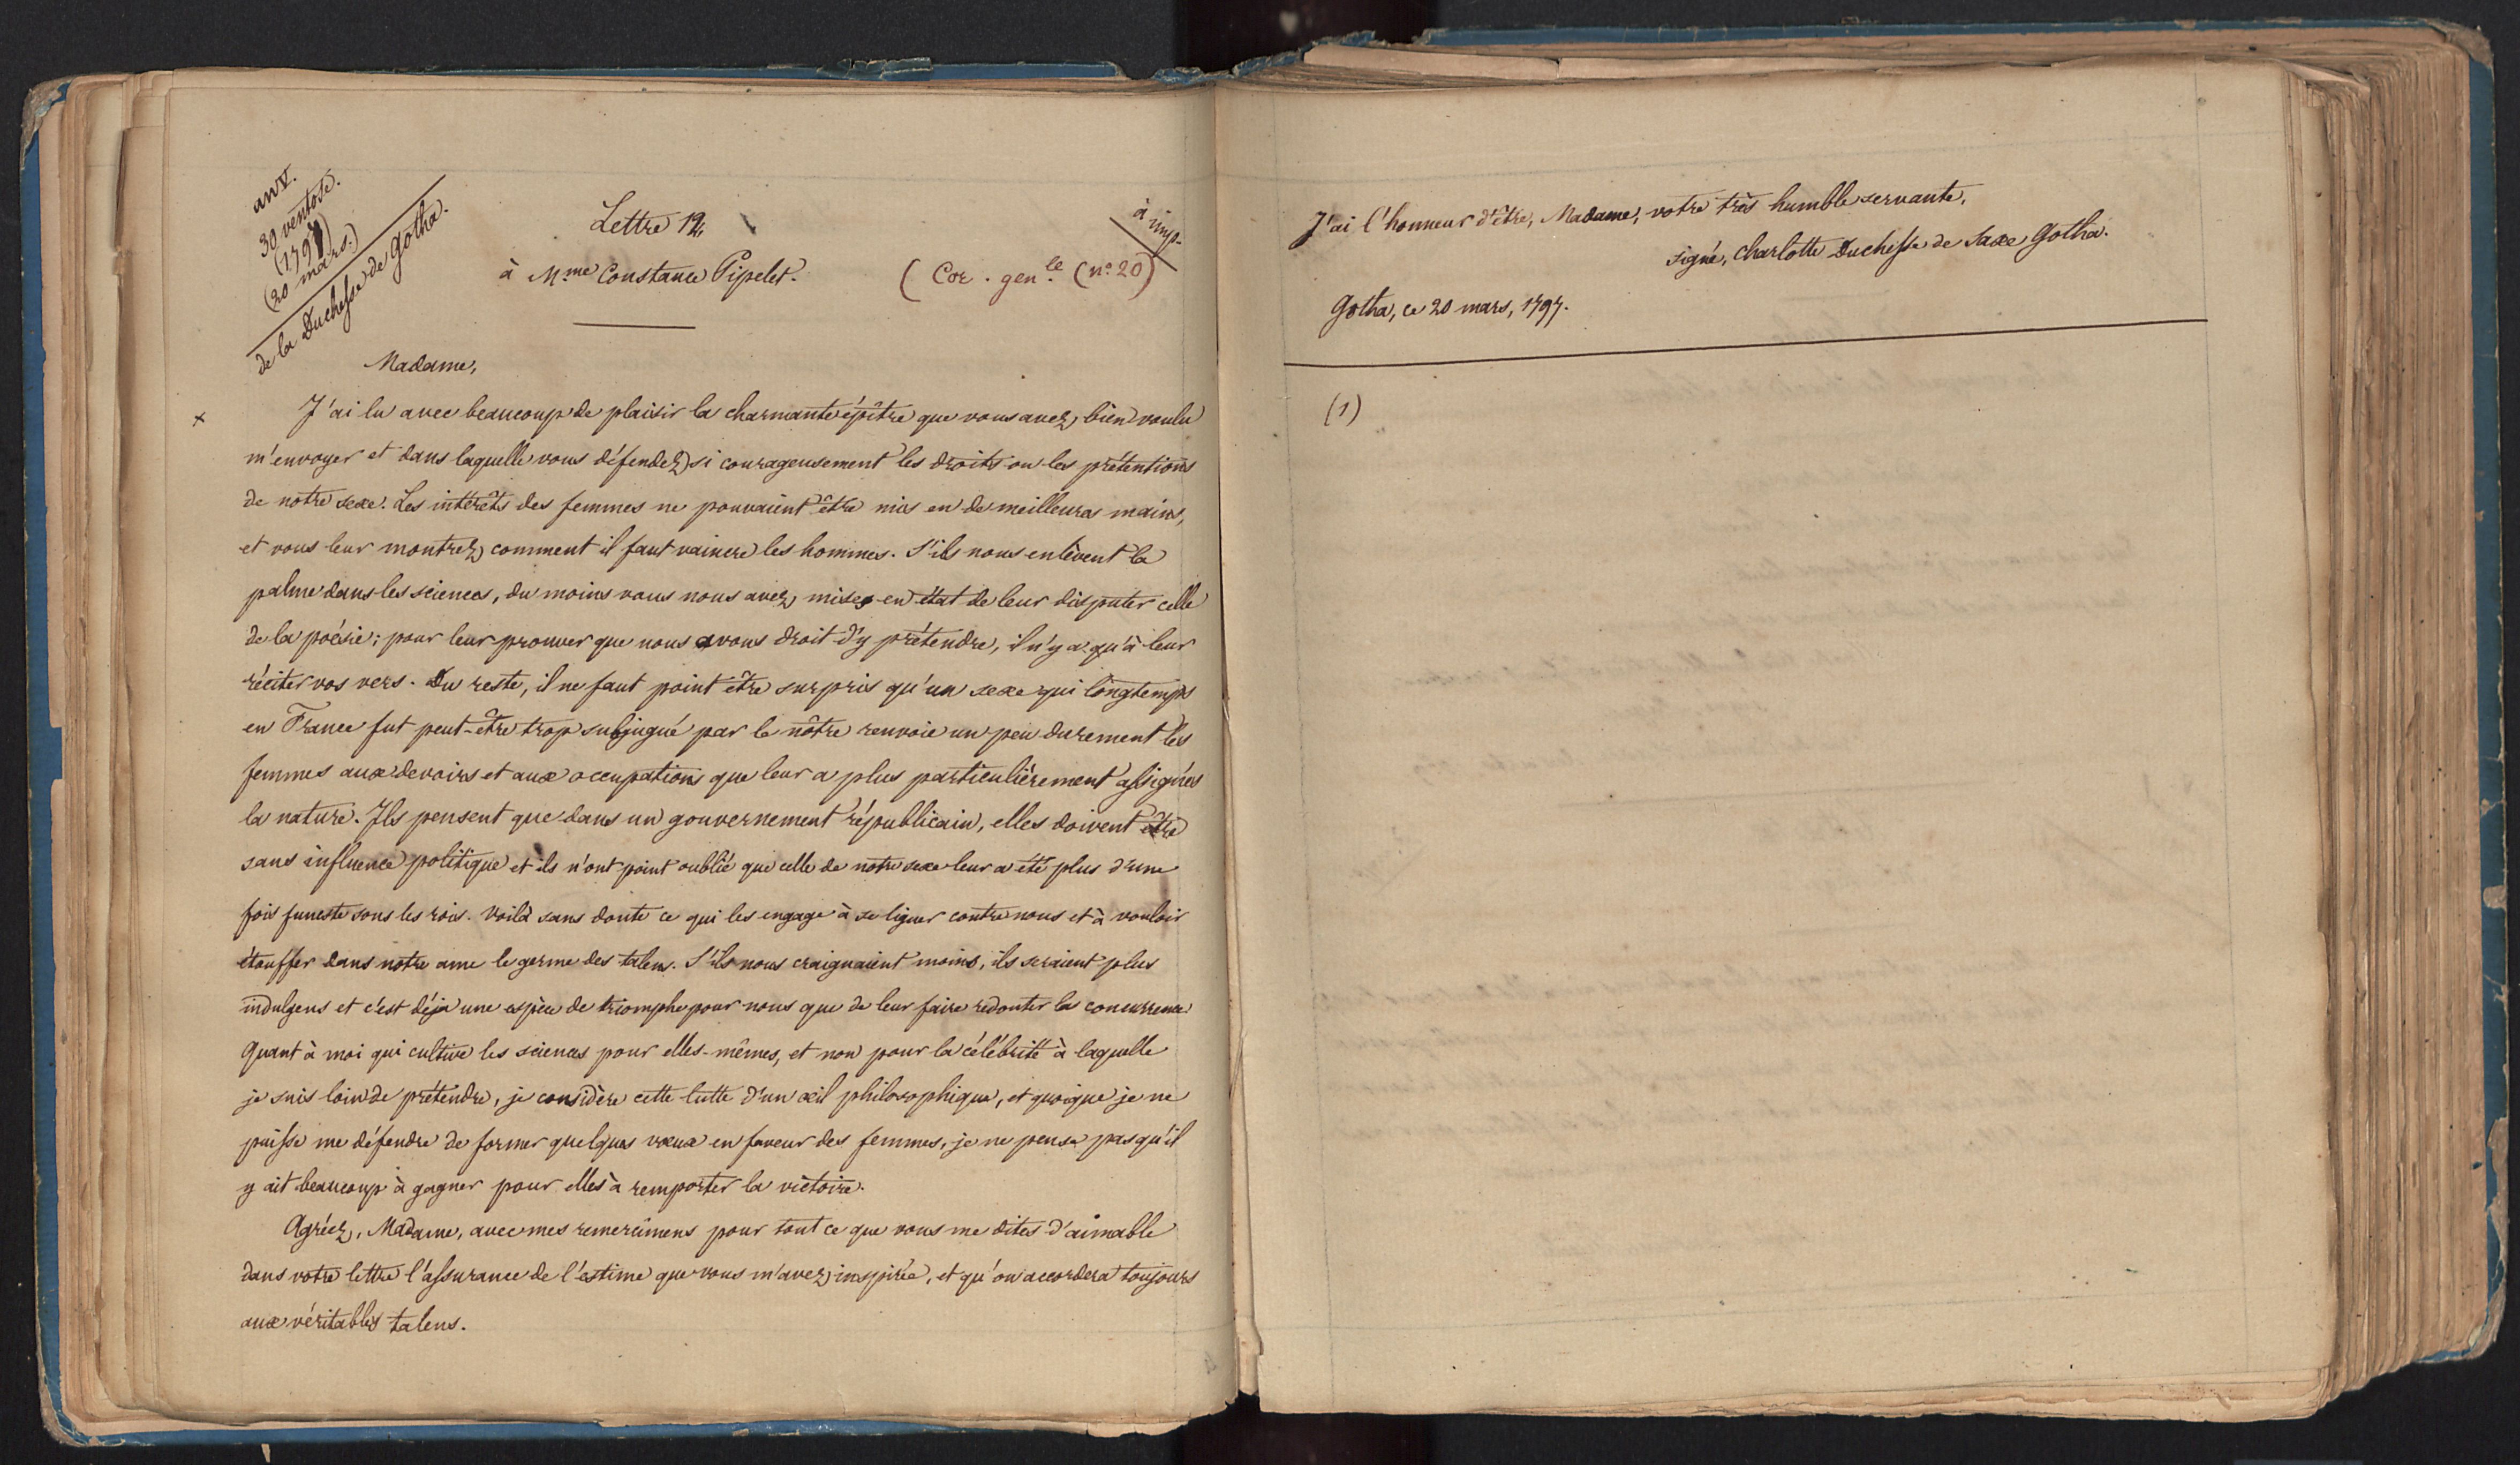 an V.
30 ventose.
(1797)
(20 mars.)
de la Duchesse de Gotha.
Lettre 12,
à imp.
à Mme Constance Pipelet.
( Cor. genle (no 20)
Madame,
x J'ai lu avec beaucoup de plaisir la charmante épître que vous avez bien voulu
m'envoyer et dans laquelle vous défendez si courageusement les droits ou les prétentions
de notre sexe. Les intérêts des femmes ne pouvaient être mis en de meilleures mains,
et vous leur montrez comment il faut vaincre les hommes. S'ils nous enlèvent la
palme dans les sciences, du moins vous nous avez mises en état de leur disputer celle
de la poésie; pour leur prouver que nous avons droit d'y prétendre, il n'y a qu'à leur
réciter vos vers. Du reste, il ne faut point être surpris qu'un sexe qui longtemps
en France fut peut-être trop subjugué par le nôtre renvoie un peu durement les
femmes aux devoirs et aux occupations que leur a plus particulièrement assignés
la nature. Ils pensent que dans un gouvernement républicain, elles doivent être
sans influence politique et ils n'ont point oublié que celle de notre sexe leur a été plus d'une
fois funeste sous les rois. Voilà sans doute ce qui les engage à se liguer contre nous et à vouloir
étouffer dans notre ame le germe des talens. S'ils nous craignaient moins, ils seraient plus
indulgens et c'est déja une espèce de triomphe pour nous que de leur faire redouter la concurrence
Quant à moi qui cultive les sciences pour elles-mêmes, et non pour la célébrité à laquelle
je suis loin de prétendre, je considère cette lutte d'un œil philosophique, et quoique je ne
puisse me défendre de former quelques vœux en faveur des femmes, je ne pense pas qu'il
y ait beaucoup à gagner pour elles à remporter la victoire.
Agréez, Madame, avec mes remercîmens pour tout ce que vous me dites d'aimable
dans votre lettre l'assurance de l'estime que vous m'avez inspirée, et qu'on accordera toujours
aux véritables talens.
J'ai l'honneur d'être, Madame, votre très humble servante,
signé, Charlotte Duchesse de Saxe Gotha.
Gotha, ce 20 mars, 1797.
(1)